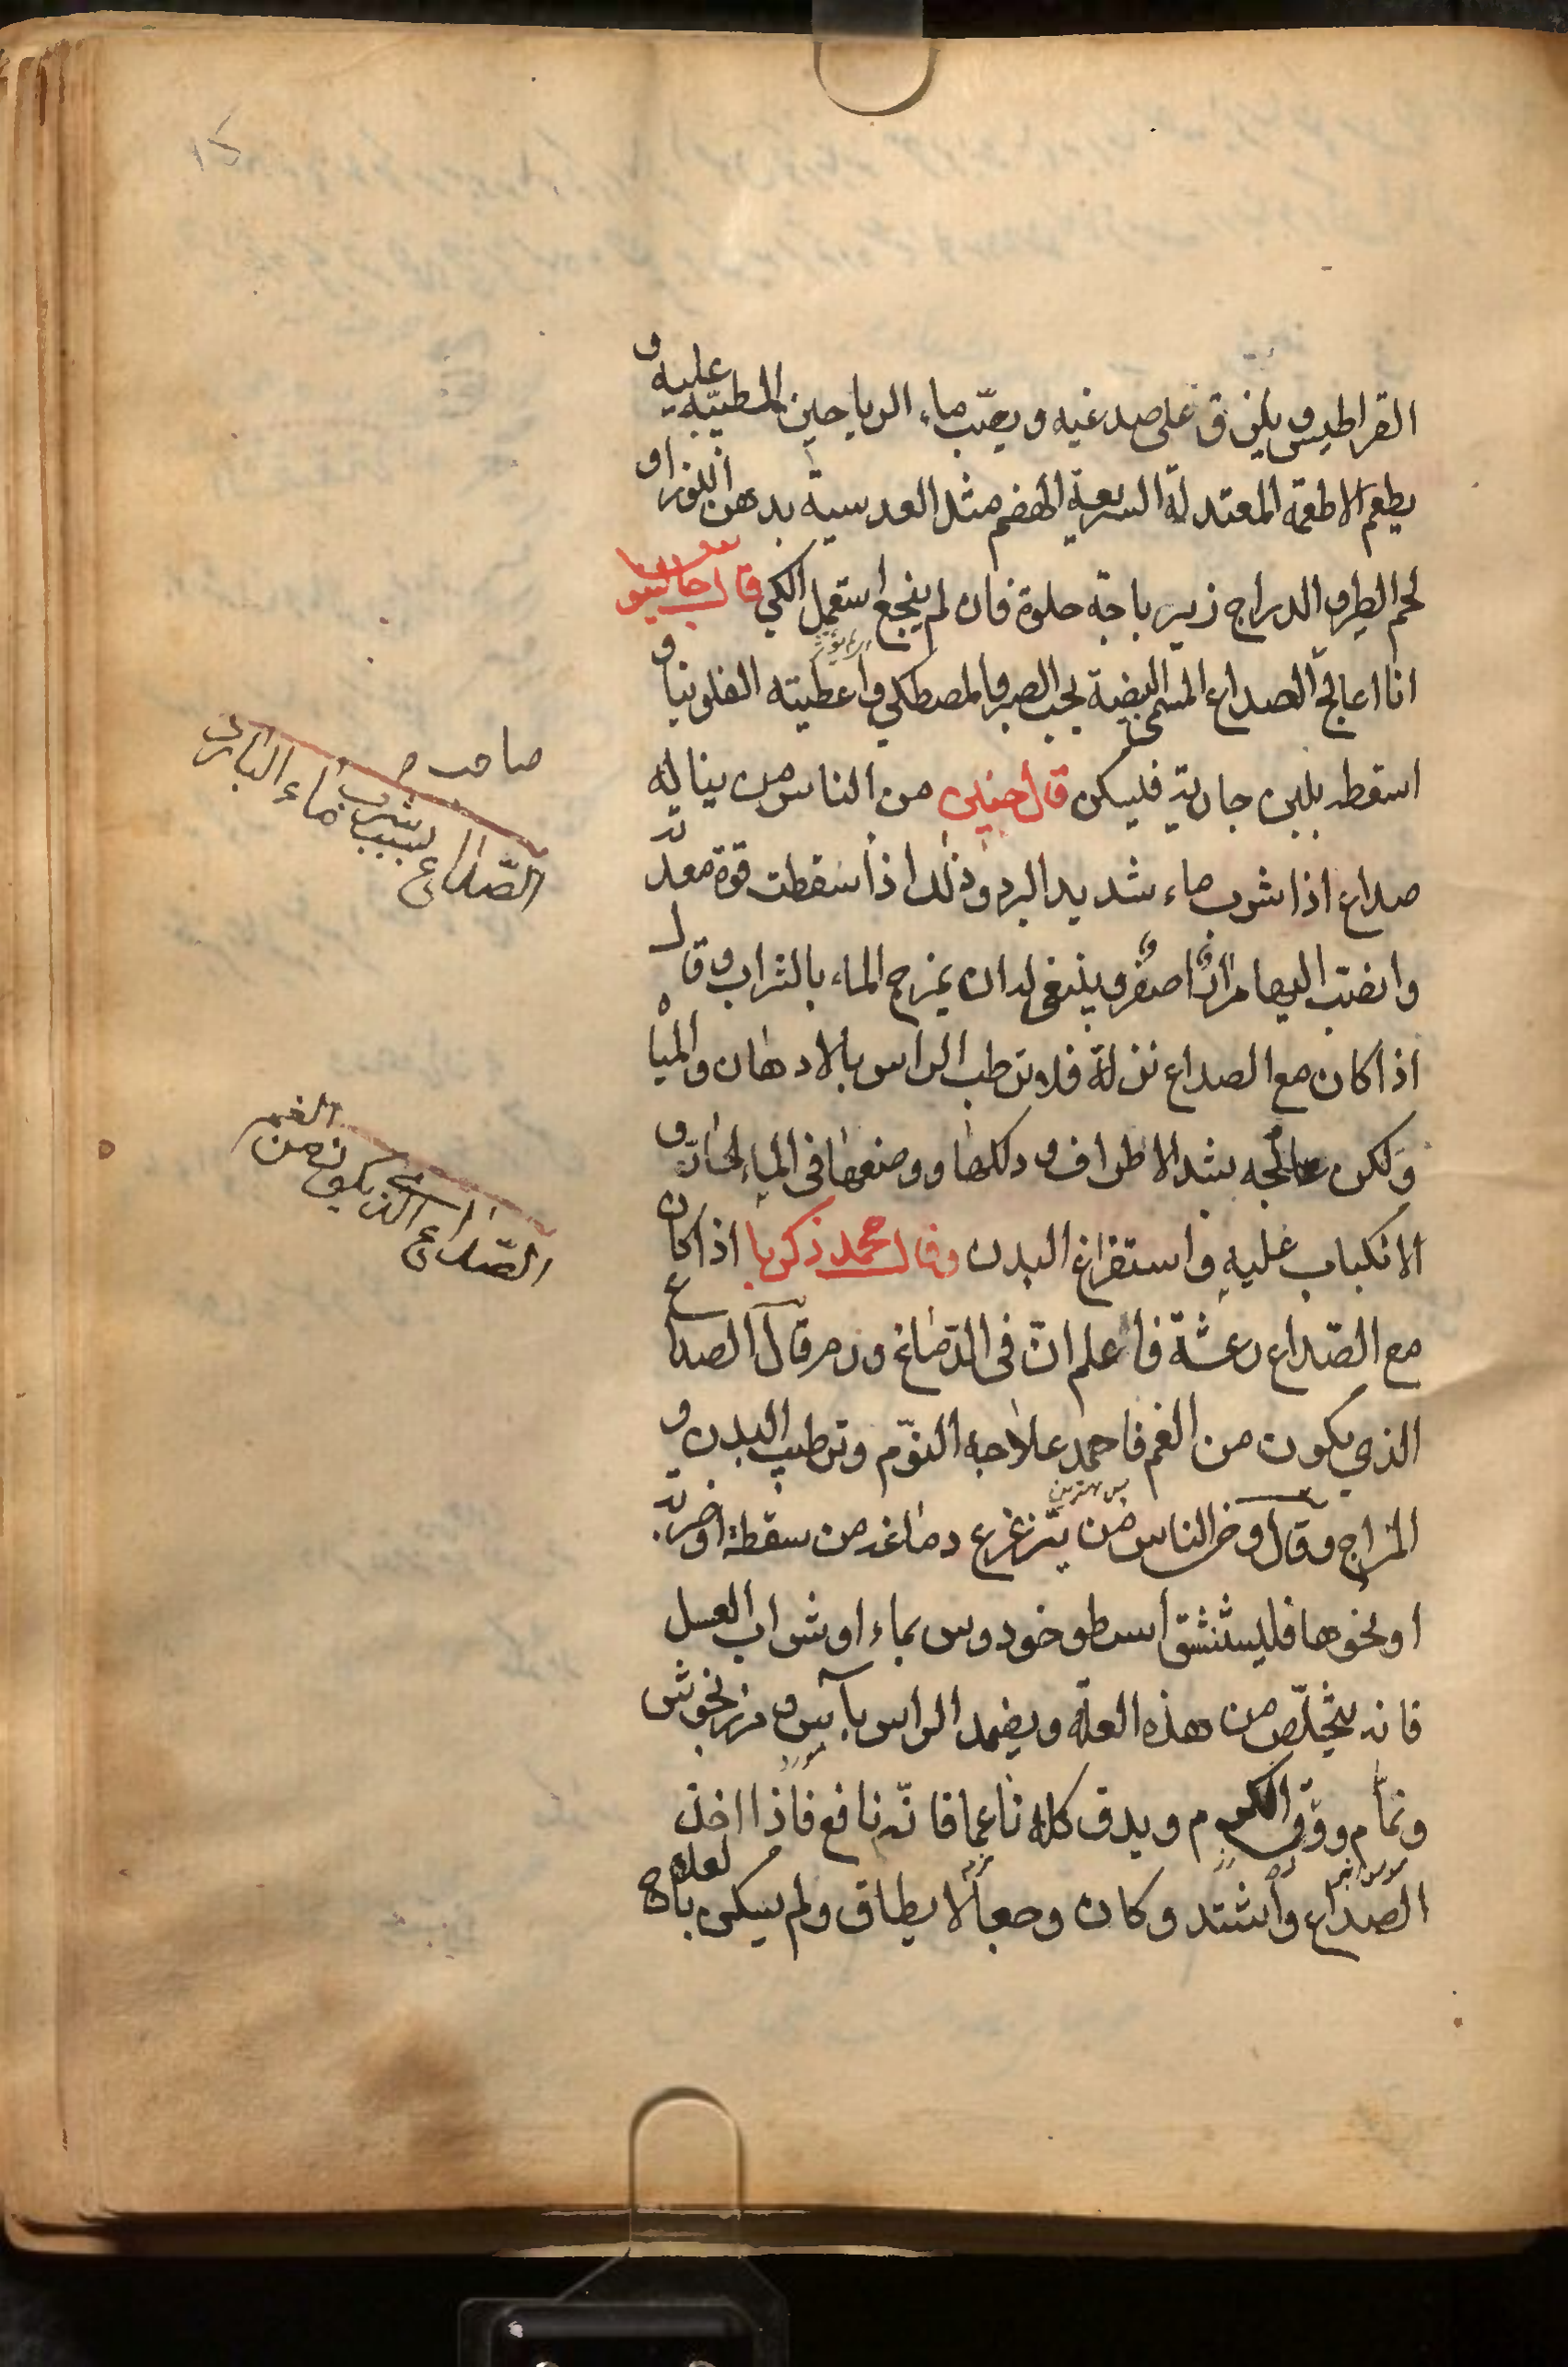 القراطيس ويلزق على صدغيه ويصبّ ماء الرياحين المطيبّة عليه و
يطعم الاطعمة المعتدلة السريعة الهضم مثل العدسية بدهن اللوز او
لحم الطير والدراج زيرباجة حلوة فان لم ينجع استعمل الكي قال جالينوس
انا اعالج الصداع المسمى البيضية بحب الصبر والمصطكي واعطيته الفلونيا و
اسقطه بلبن جارية فليسكن قال حنين من الناس من يناله
صداع اذا شرب ماء شديد البرد وذلك اذا سقطت قوة معدته
وانصب اليها مرارا صفر وينبغى له ان يمزج الماء بالشراب وقال
اذا كان مع الصداع نزلة فلا ترطب الراس بالادهان والمياه
ولكن عالجه بشد الاطراف ودلكها ووضعها فى الماء الحارّ و
الانكباب عليه واستفراغ البدن وقال محمد زكريا اذا كان
مع الصّداع رعشة فاعلم انّ فى الدّماغ ورم قال الصداع
الذي يكون من الغم فاحمد علاجه النوّم وترطيب البدن و
المزاج وقال وفى الناس من يتزعزع دماغه من سقطة او ضربة
او نحوها فليستنشق اسطوخودوس بماء او شراب العسل
فانه يتخلّص من هذه العلة ويضمد الراس بآس ومرزنجوش
ونمّام وورق الكروم ويدق كله ناعما فانّه نافع فاذا اخذ
الصداع واشتد وكان وجعا لا يطاق ولم يسكن بالعلاج
الصّداع بسبب شرب ماء البارد
الصّداع الذي يكون من الغم